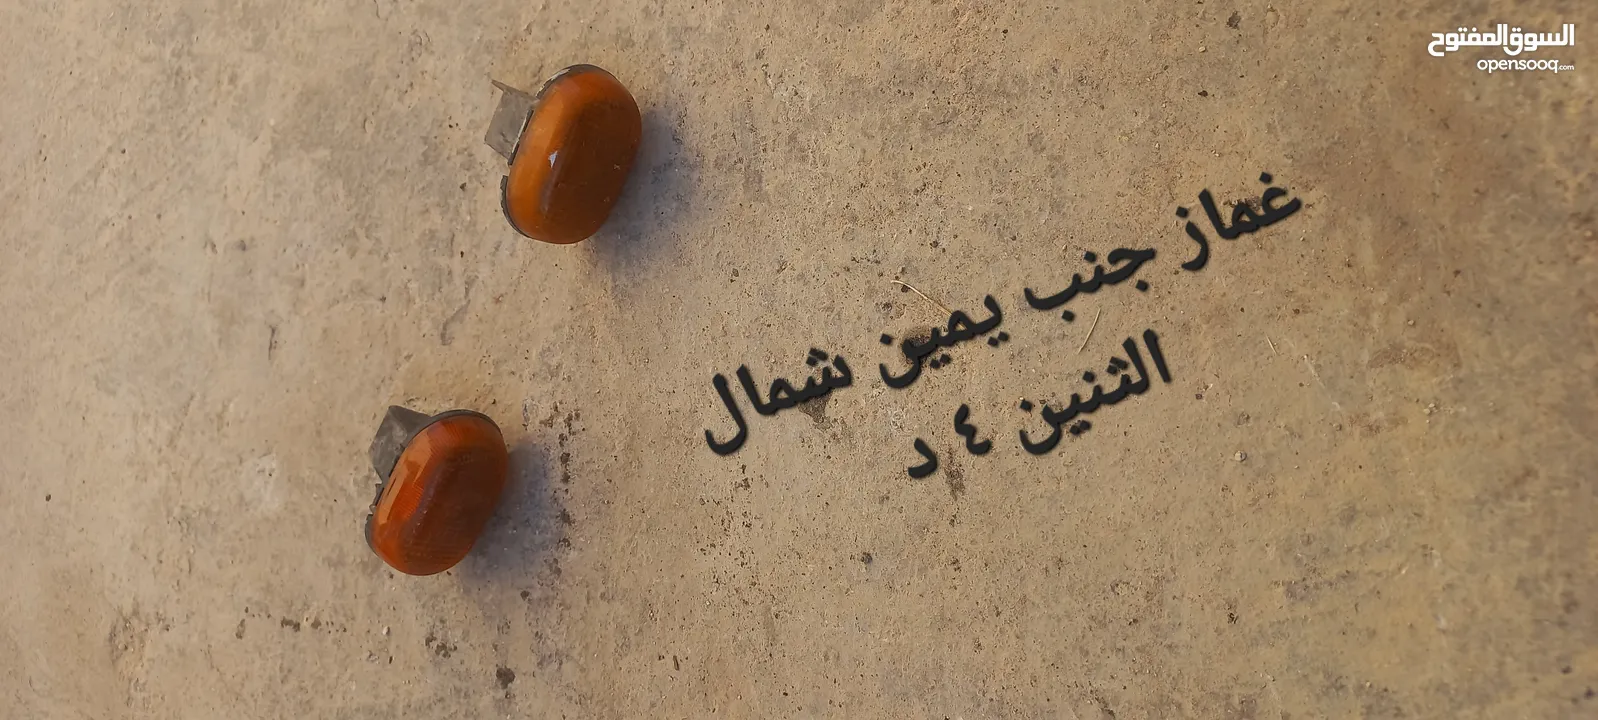 السوق المفتوح
opensooq.com
غماز جنب يمين شمال
الثنين ٤ د